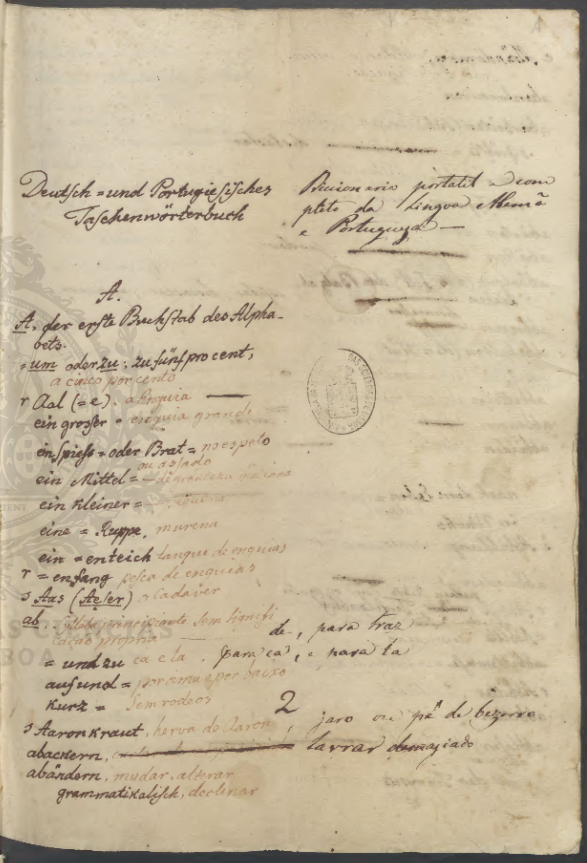 Deutsch = und Portugiesisches
Taschenwörterbuch
Diccionario portatil e com
pleto da Lingoa Alemã
e Portugueza
A.
A, der erste Buchstab des Alpha-
bets.
= um oder zu; zu fünf pro cent,
a cinco por cento
r Aal (= e). a enguia
ein großer = enguia grande
ein spieß = oder Brat = no espeto
ou assado
ein Mittel = de grandeza
ein kleiner =
eine = Ruppe, murena
ein = enteich tanque de enguias
r = enfang pesca de enguias
s Aas (Aeser) o cadaver
ab. principiante sem signifi
cação propria de, para traz
= und zu ca e la. para ca, e para la
auf und = por cima e por baixo
kurz = sem rodeos
2
s Aaronkraut, herva de Aaron, jaro ou pé de bezerro
abackern, lavrar demaziado
abändern, mudar, alterar
grammatikalisch, declinar